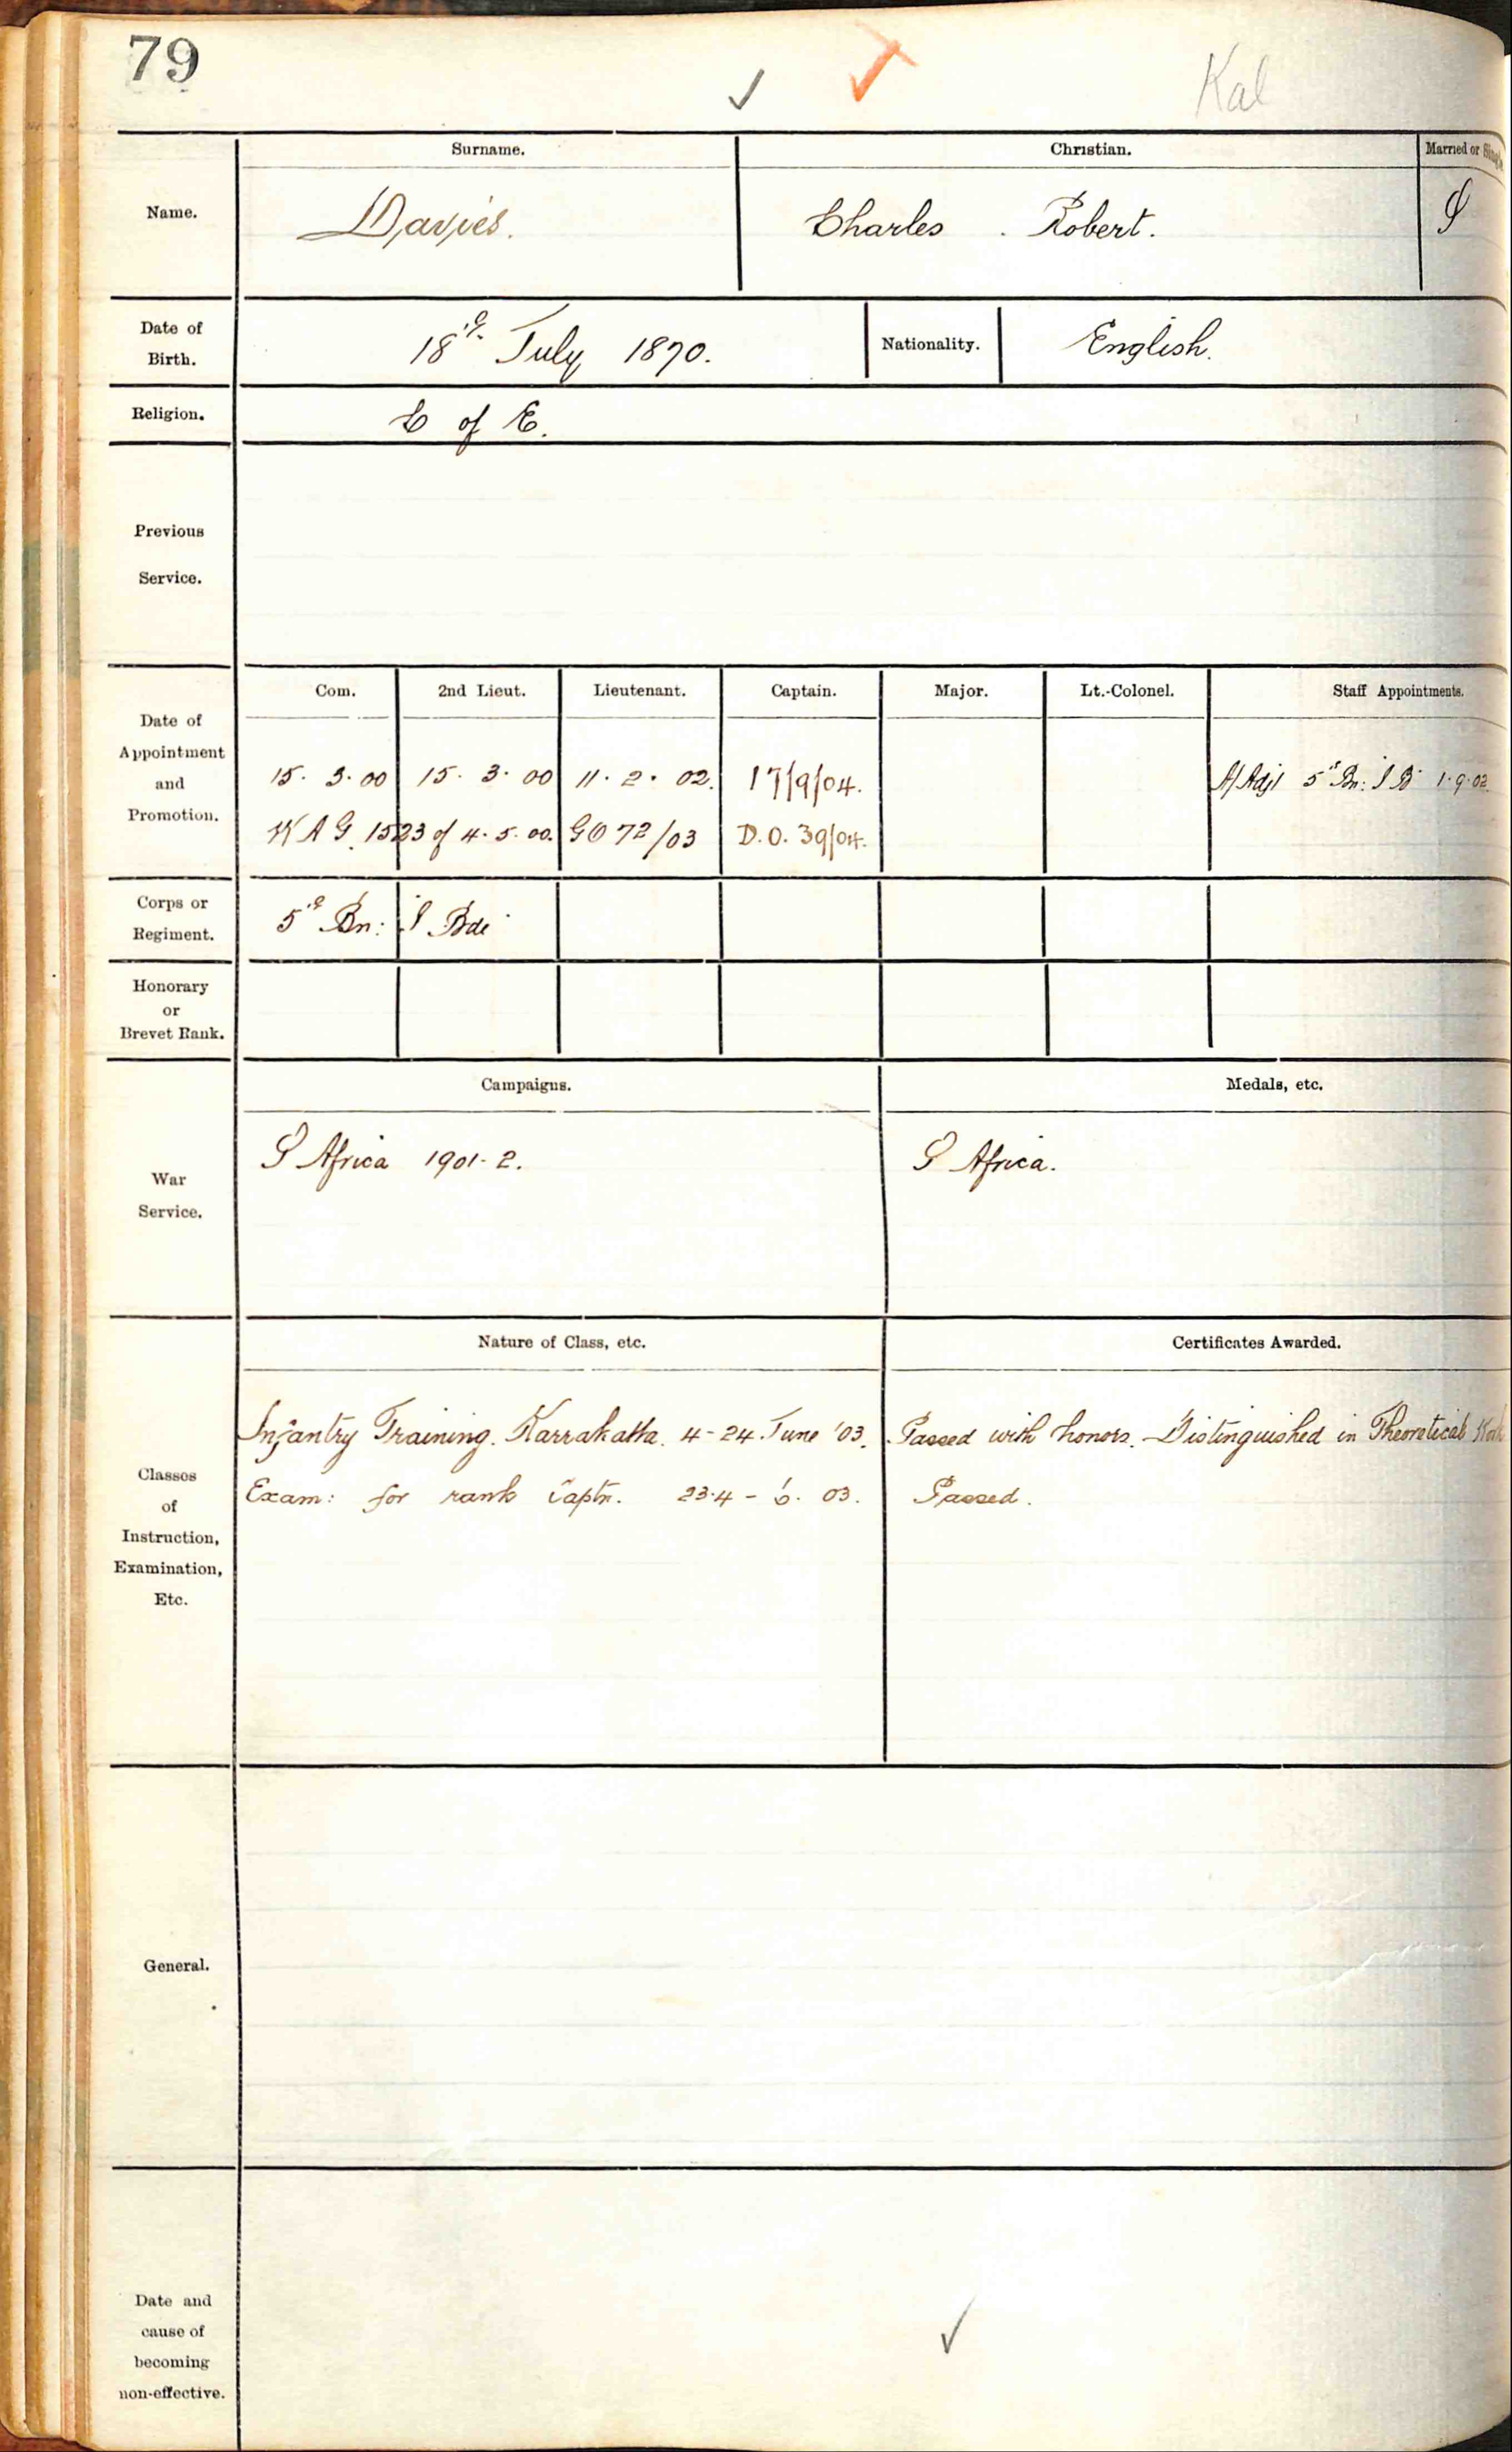 79
Kal
Surname. Christian. Married or Single
Name. Davies. Charles . Robert. S
Date of Birth. 18th July 1870. Nationality. English.
Religion. C of E.
Previous Service.
Com. 2nd Lieut. Lieutenant. Captain. Major. Lt.-Colonel. Staff Appointments.
Date of Appointment and Promotion.
15. 3. 00 15. 3. 00 11. 2. 02. 17/9/04. A/Adjt 5th Bn: I B 1.9.02
W A G. 1523 of 4. 5. 00. G O 72/03 D.O. 39/04.
Corps or Regiment. 5th Bn: I Bde
Honorary or Brevet Rank.
Campaigns. Medals, etc.
War Service. S Africa 1901-2. S Africa.
Nature of Class, etc. Certificates Awarded.
Classes of Instruction, Examination, Etc.
Infantry Training. Karrakatta. 4-24. June '03. Passed with honors. Distinguished in Theoretical
Exam: for rank Captn. 23.4 - 6. 03. Passed.
General.
Date and cause of becoming non-effective.